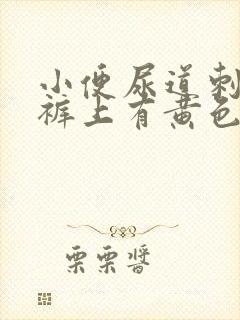 小便尿道刺
裤上有黄色
栗栗酱